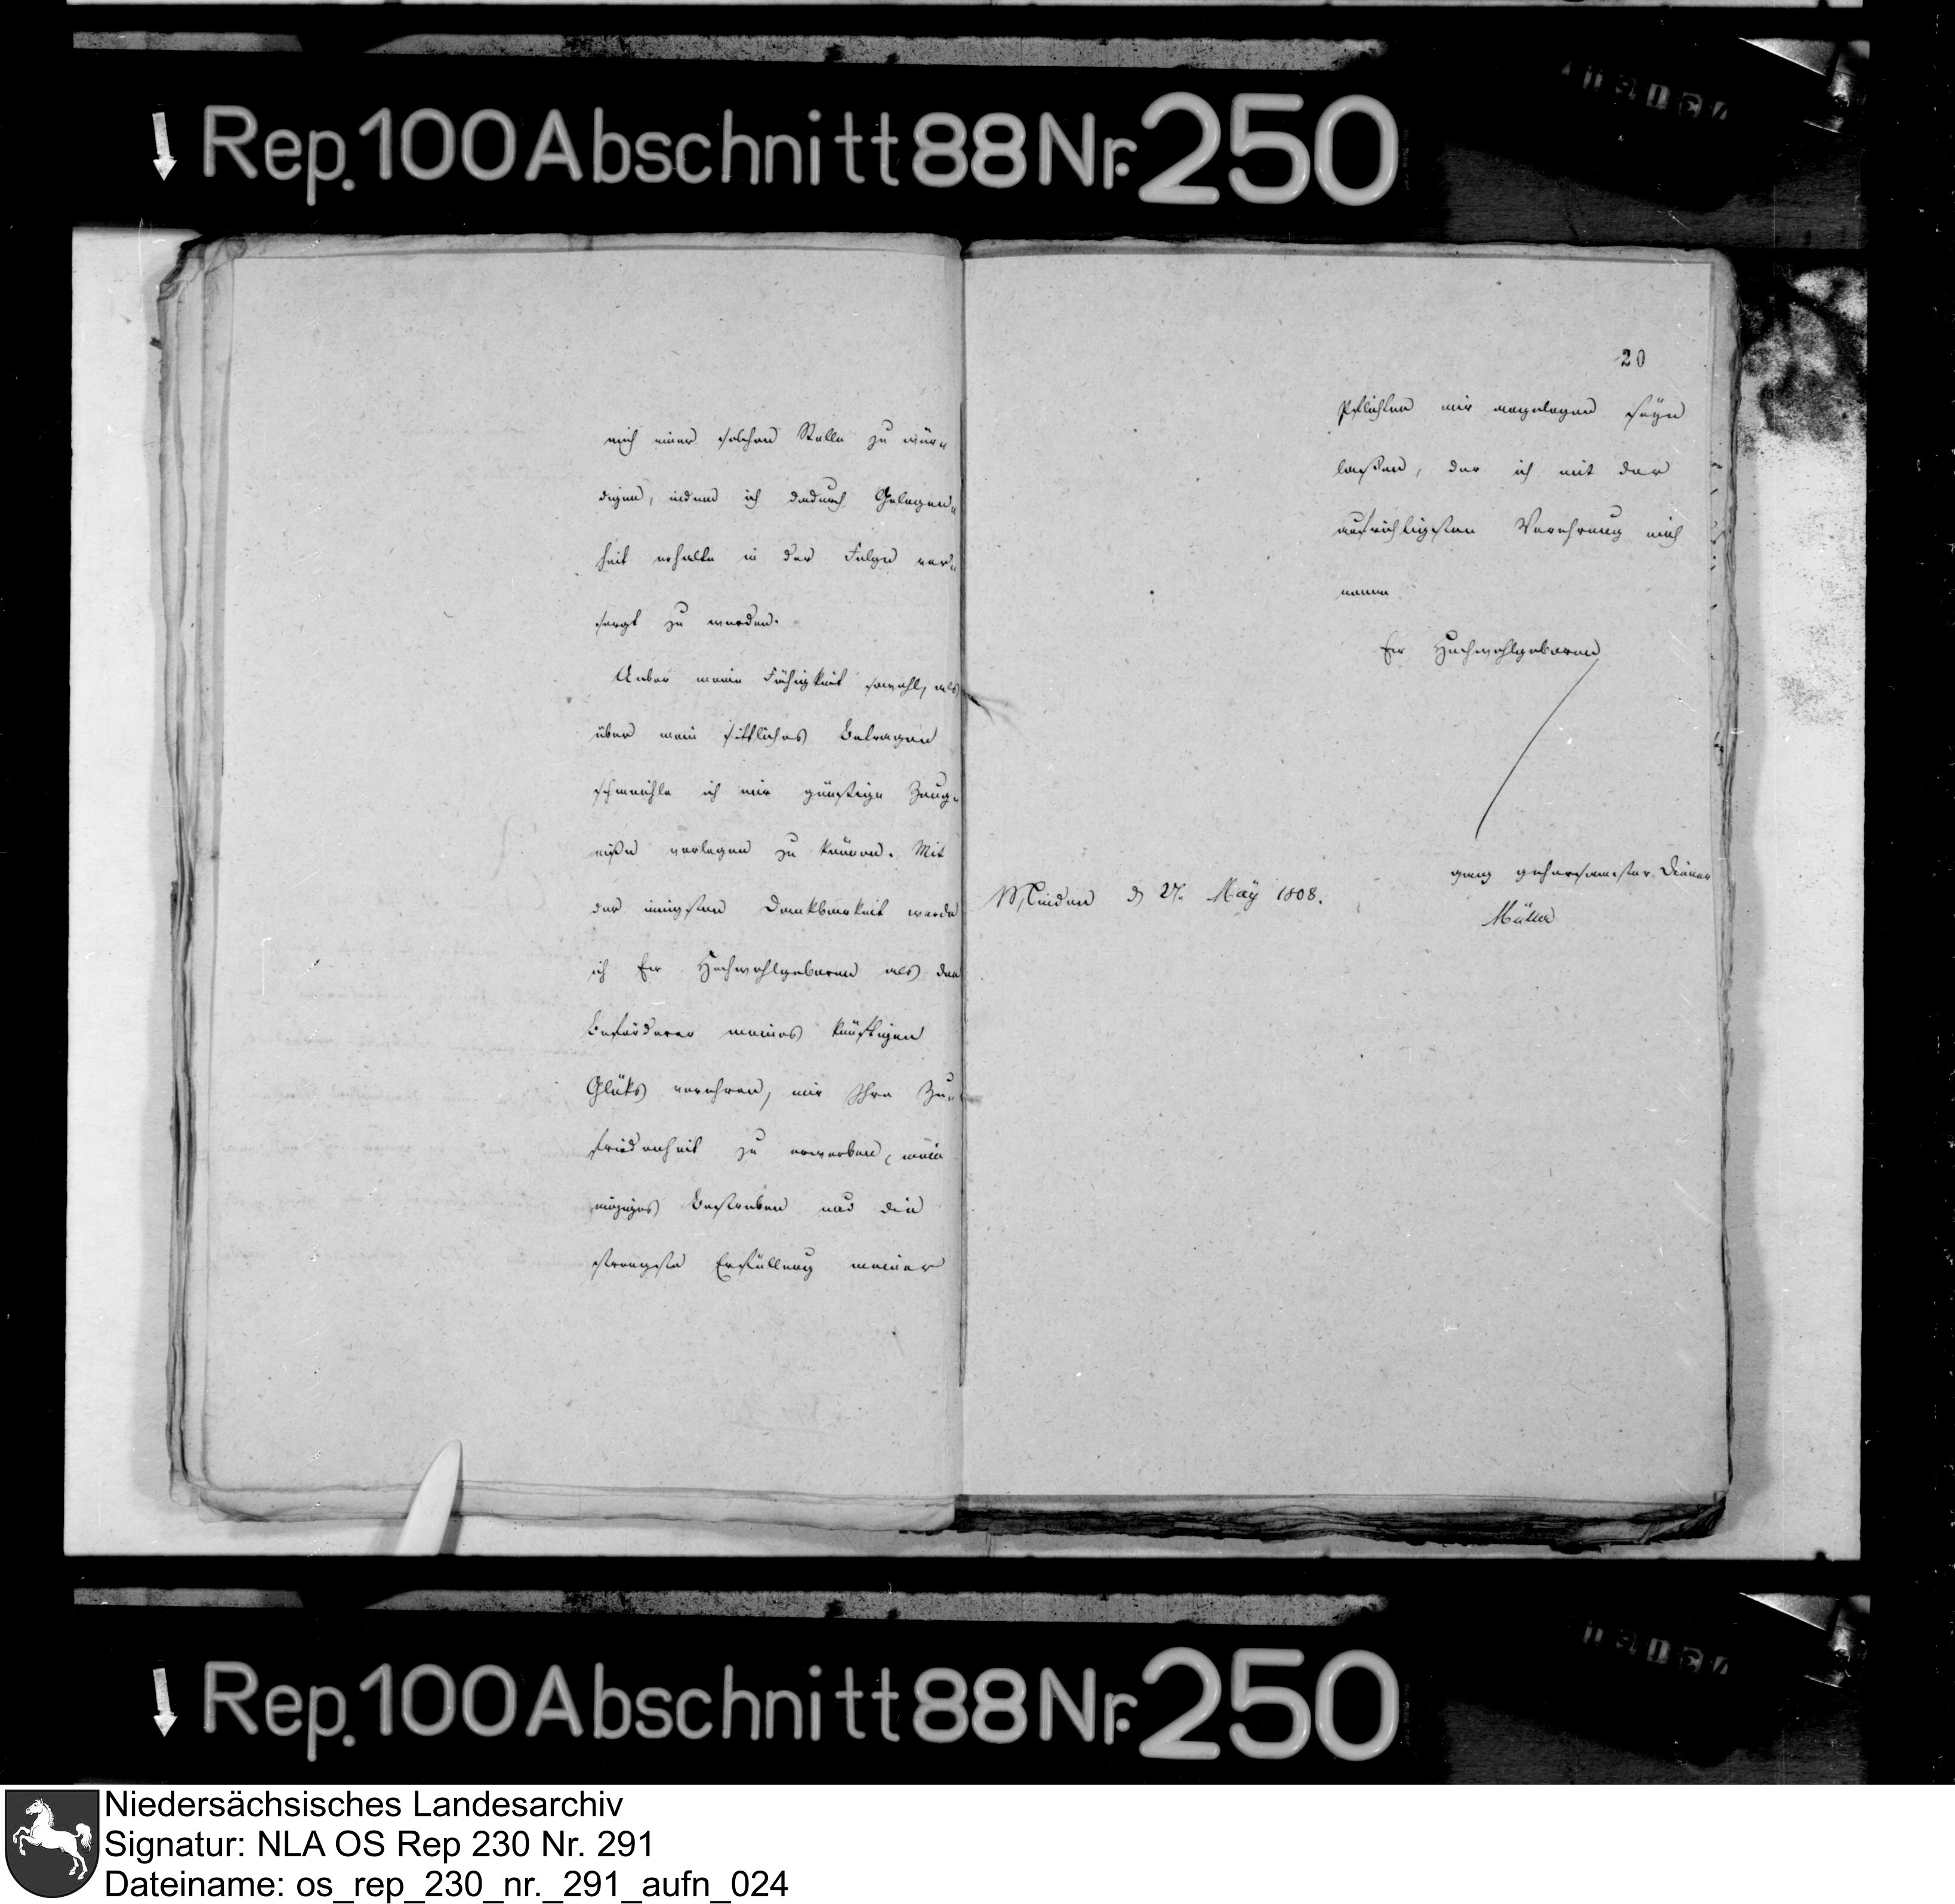 Rep. 100 Abschnitt 88 Nr. 250
mich einer solchen Stelle zu wür„
digen, indem ich dadurch Gelegen„
heit erhalte in der Folge ver„
sorgt zu werden.
Ueber meine Fähigkeit sowohl, als
über mein sittliches Betragen
schmeichle ich mir günstige Zeug„
niße vorlegen zu können. Mit
der innigsten Dankbarkeit werde
ich Ew Hochwohlgeboren als den
Beförderer meines künftigen
Glüks verehren, mir Ihre Zu„
friedenheit zu erwerben, mein
einziges Bestreben und die
strengste Erfüllung meiner
20
Pflichten mir angelegen seyn
laßen, der ich mit der
aufrichtigsten Verehrung mich
nenne
Ew Hochwohlgeboren
ganz gehorsamster Diener
Minden d 27. May 1808.
Müller
Rep. 100 Abschnitt 88 Nr. 250
Niedersächsisches Landesarchiv
Signatur: NLA OS Rep 230 Nr. 291
Dateiname: os_rep_230_nr._291_aufn_024